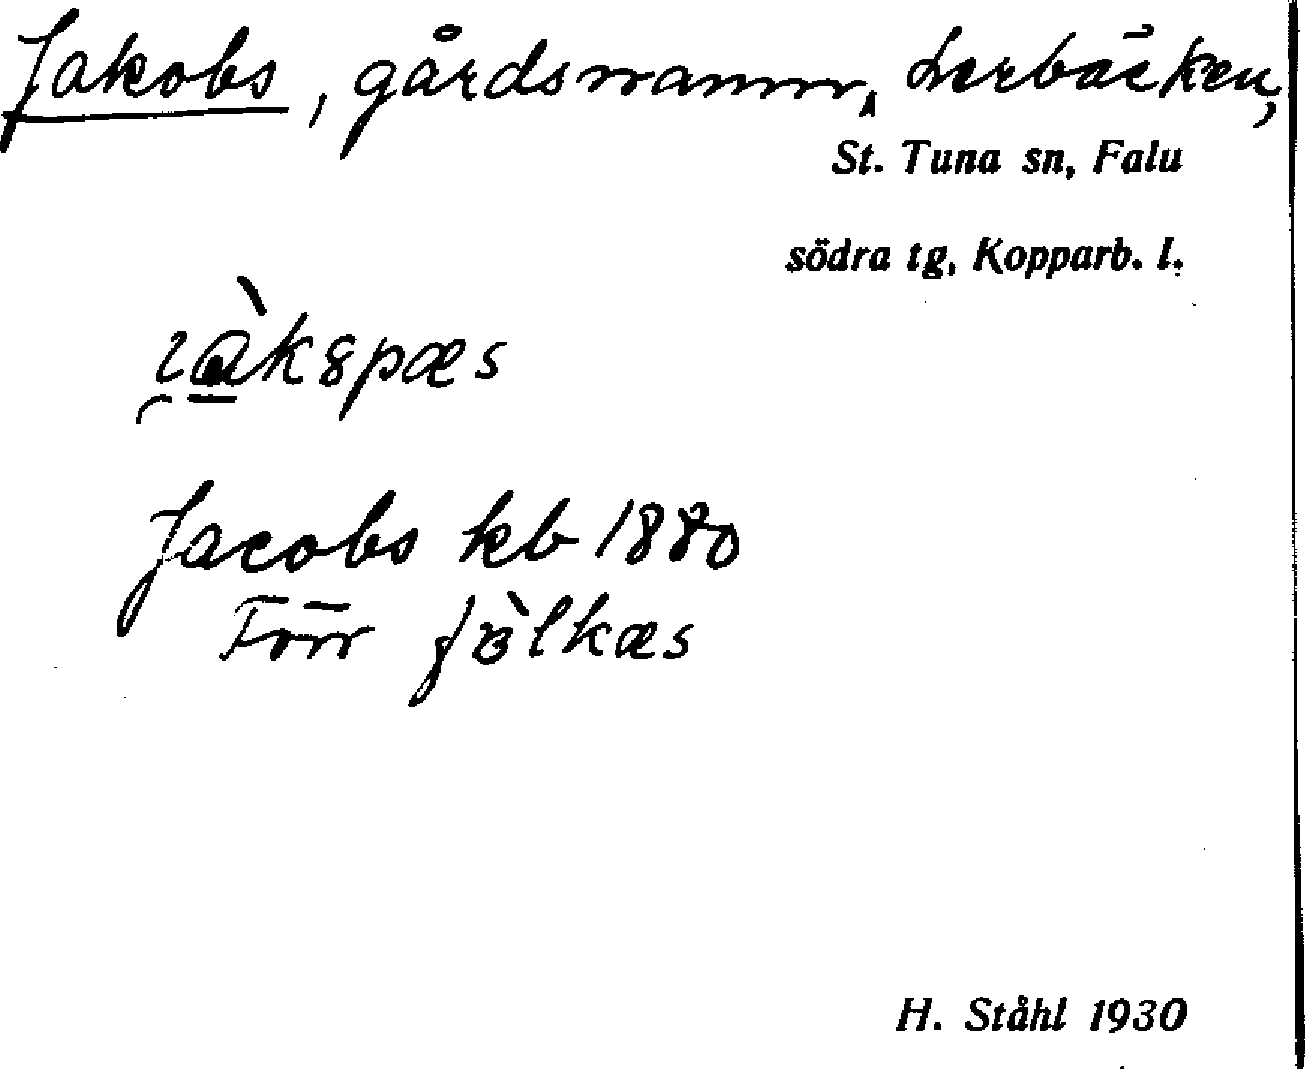 Jakobs, gårdsnamn, Lerbäcken,
St. Tuna sn, Falu
södra tg, Kopparb. l.
Jacobs kb 1880
Förr
H. Ståhl 1930